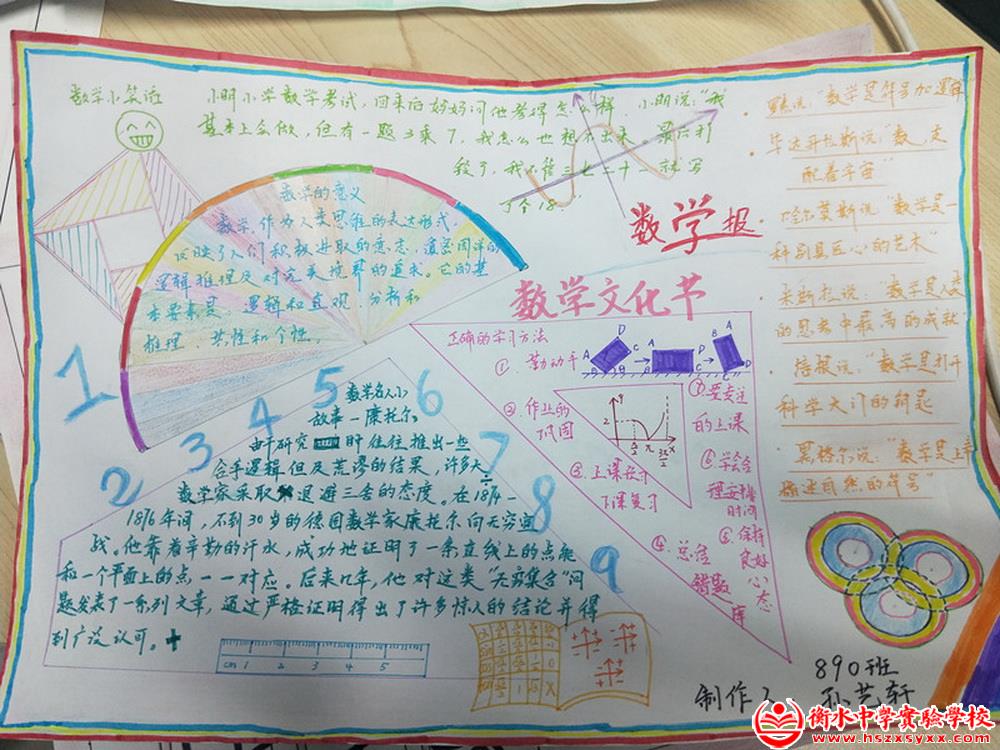 数学小笑话
小明小学数学考试,回来后妈妈问他考得怎么样,小明说:"我
基本上会做,但有一题3乘7,我怎么也想不出来,最后打
我不管三七二十一就写
了个18."
数学报
数学文化节
数学的意义
数学,作为人类思维的表达形式,
反映了人们积极进取的意志,缜密周详的
逻辑推理及对完美境界的追求。它的基
本要素是:逻辑和直观、分析和
推理、共性和个性。
1
2
3
4
5
6
7
8
9
数学名人小
故事-康托尔
由于研究 时往往推出一些
合乎逻辑但及荒谬的结果,许多大
数学家采取 退避三舍的态度。在1874-
1876年间,不到30岁的德国数学家康托尔向无穷宣
战。他靠着辛勤的汗水,成功地证明了一条直线上的点能
和一个平面上的点一一对应。后来几年,他对这类"无穷集合"问
题发表了一系列文章,通过严格证明得出了许多惊人的结论并得
到广泛认可。
cm 1 2 3 4 5
正确的学习方法
①.勤动手
②.作业的
巩固
③.上课认
下课复习
④.总结
错题
库
⑤.保持
良好
心态
⑥.学会合
理安排
时间
⑦.要专注
的上课
A B C D
A B C D
2
π
x
说:"数学是符号加逻辑"
毕达哥拉斯说:"数,支
配着宇宙"
哈尔莫斯说"数学是一
科别具匠心的艺术"
米斯拉说:"数学是人类
的思考中最高的成就"
培根说:"数学是打开
科学大门的钥匙"
黑格尔说:"数学是上帝
描述自然的符号"
890班
制作人 孙艺轩
衡水中学实验学校
www.hszxsyxx.com